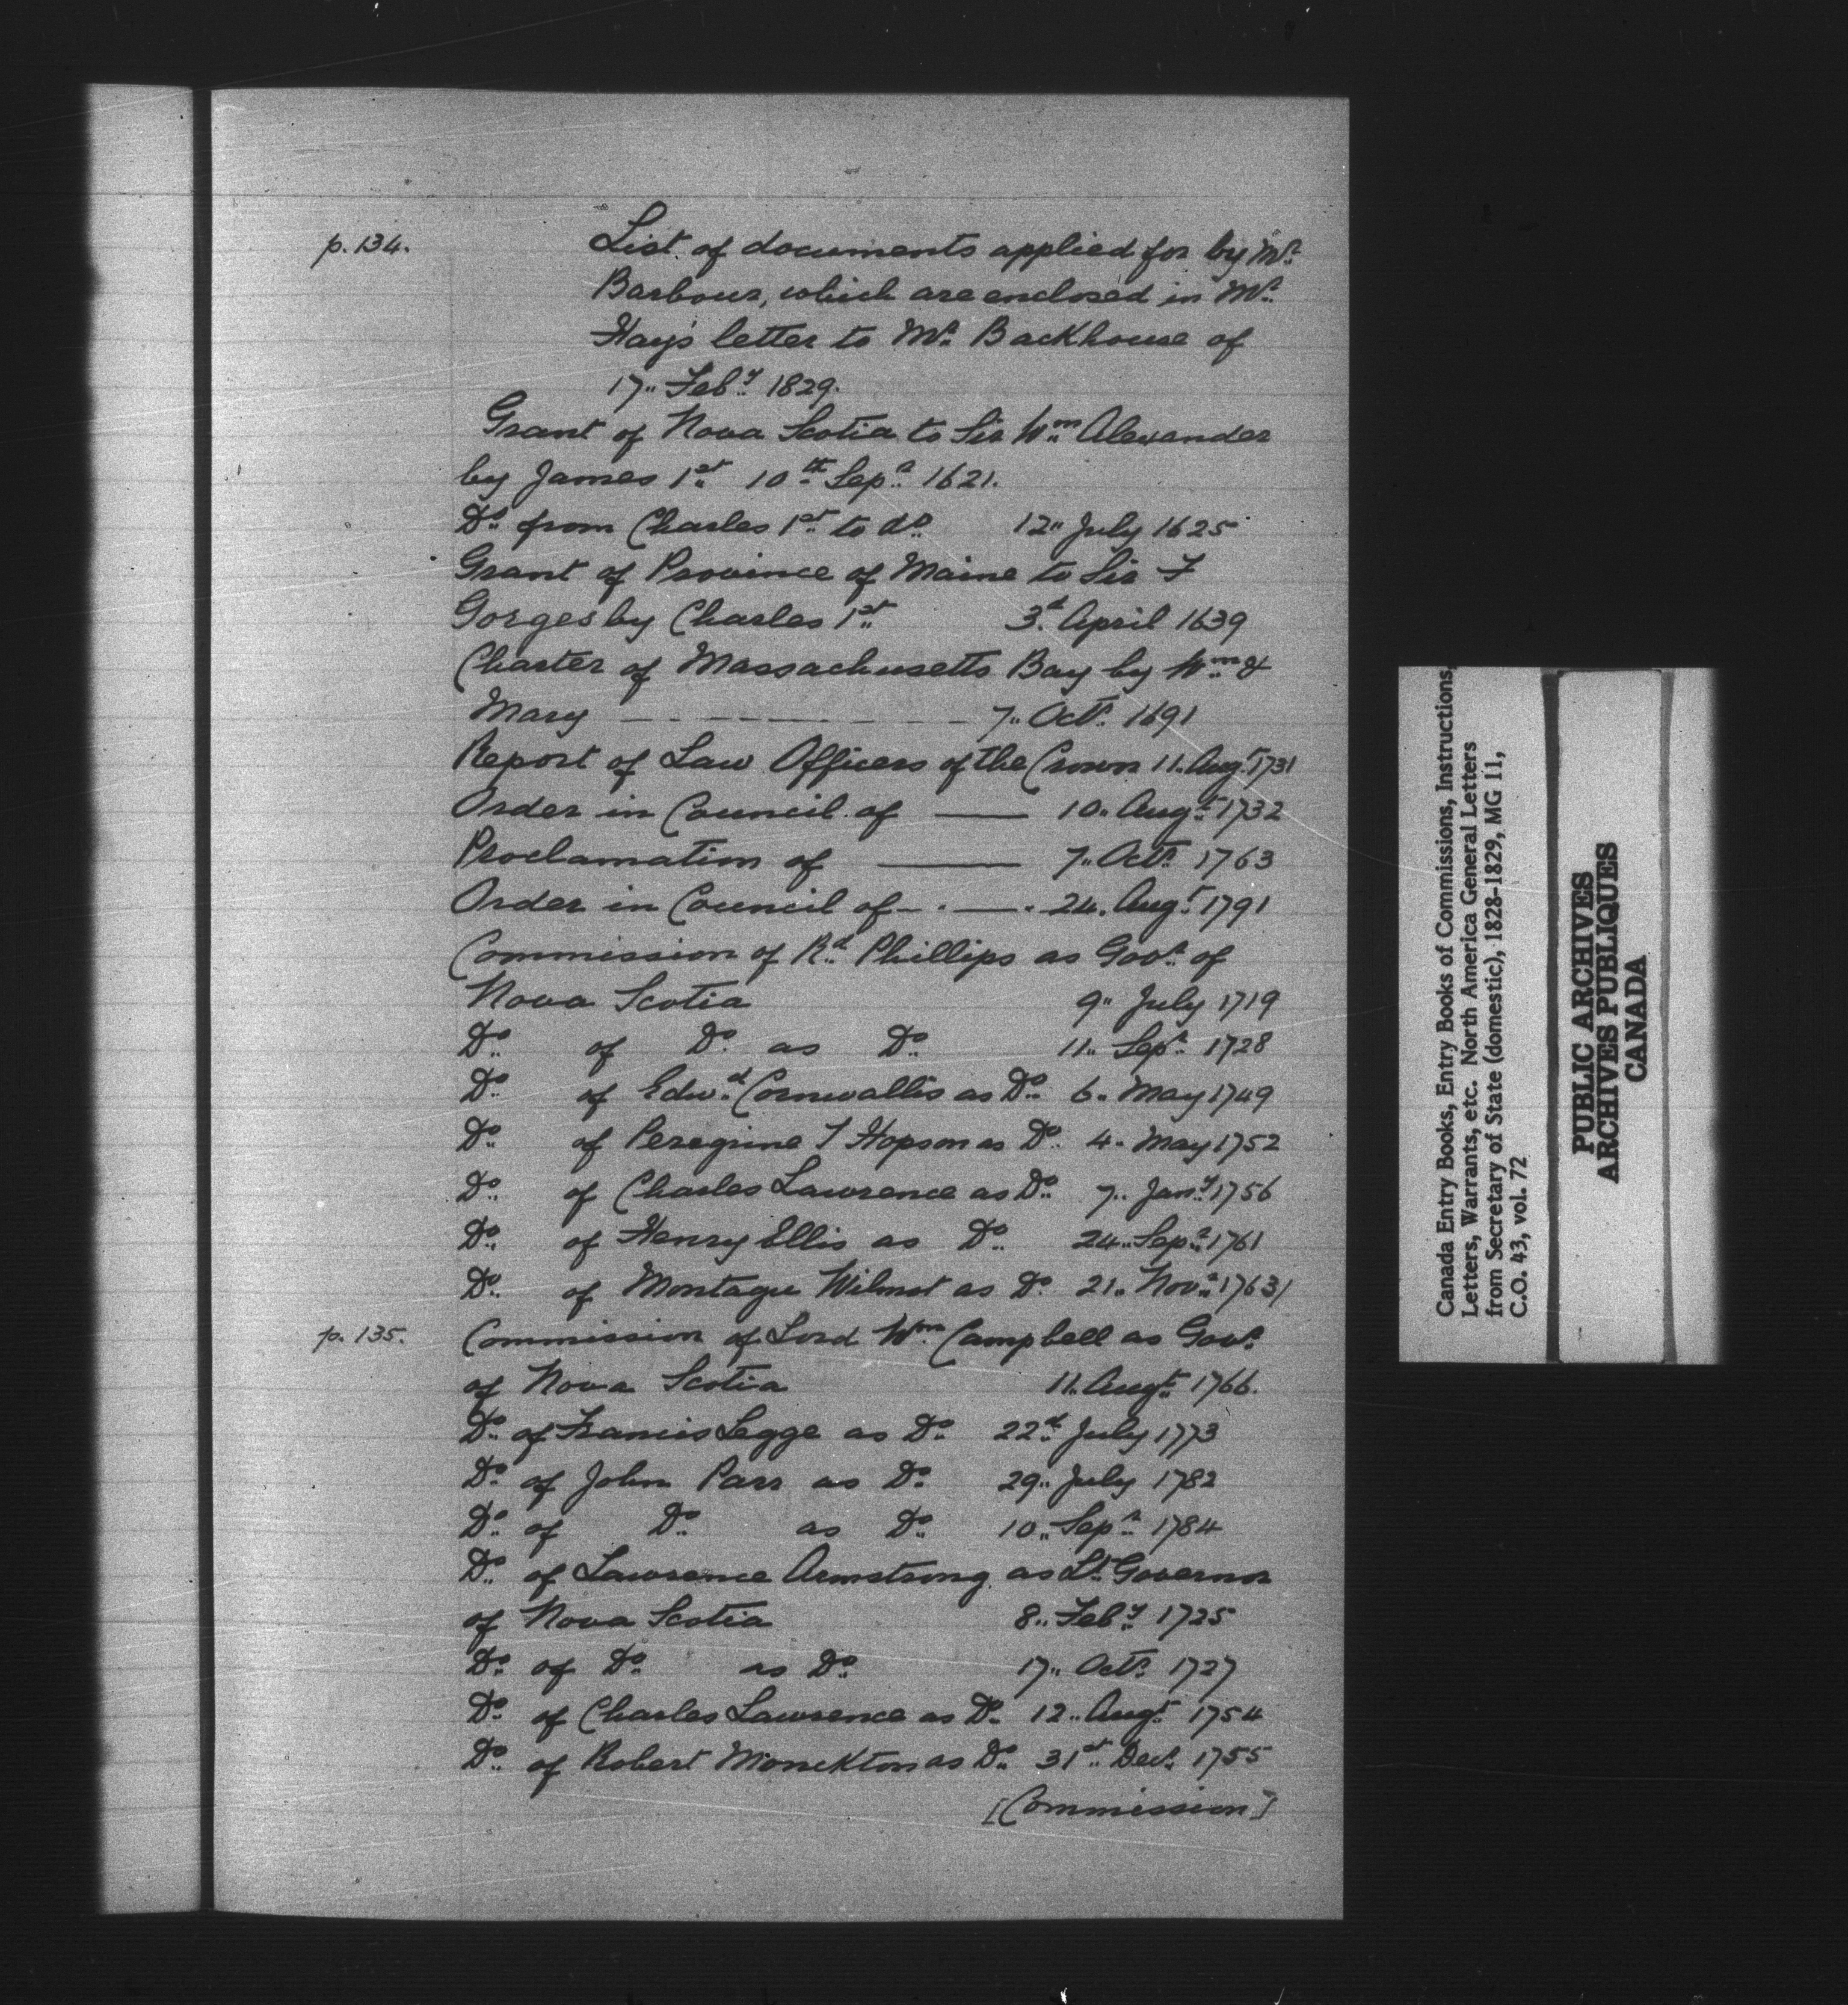 p. 134.
List of documents applied for by Mr.
Barbour, which are enclosed in Mr.
Hay's letter to Mr. Backhouse of
17" Feby 1829.
Grant of Nova Scotia to Sir Wm Alexander
by James 1st 10th Sepr 1621.
Do from Charles 1st to do 12" July 1625
Grant of Province of Maine to Sir F
Gorges by Charles 1st 3d April 1639
Charter of Massachusetts Bay by Wm &
Mary — — — — — — 7" Octr 1691
Report of Law Officers of the Crown 11" Augt 1731
Order in Council of — 10" Augt 1732
Proclamation of — 7" Octr 1763
Order in Council of - . — . 24" Augt 1791
Commission of Rd Phillips as Govr of
Nova Scotia 9" July 1719
Do of Do as Do 11" Sepr 1728
Do of Edwd Cornwallis as Do 6" May 1749
Do of Peregrine T Hopson as Do 4" May 1752
Do of Charles Lawrence as Do 7" Jany 1756
Do of Henry Ellis as Do 24" Sepr 1761
Do of Montagu Wilmot as Do 21" Novr 1763/
p. 135.
Commission of Lord Wm Campbell as Govr
of Nova Scotia 11" Augt 1766.
Do of Francis Legge as Do 22d July 1773
Do of John Parr as Do 29" July 1782
Do of Do as Do 10" Sepr 1784
Do of Lawrence Armstrong as Lt Governor
of Nova Scotia 8" Feby 1725
Do of Do as Do 17" Octr 1727
Do of Charles Lawrence as Do 12" Augt 1754
Do of Robert Monckton as Do 31st Decr 1755
[Commission]
Canada Entry Books, Entry Books of Commissions, Instructions,
Letters, Warrants, etc. North America General Letters
from Secretary of State (domestic), 1828-1829, MG 11,
C.O. 43, vol. 72
PUBLIC ARCHIVES
ARCHIVES PUBLIQUES
CANADA